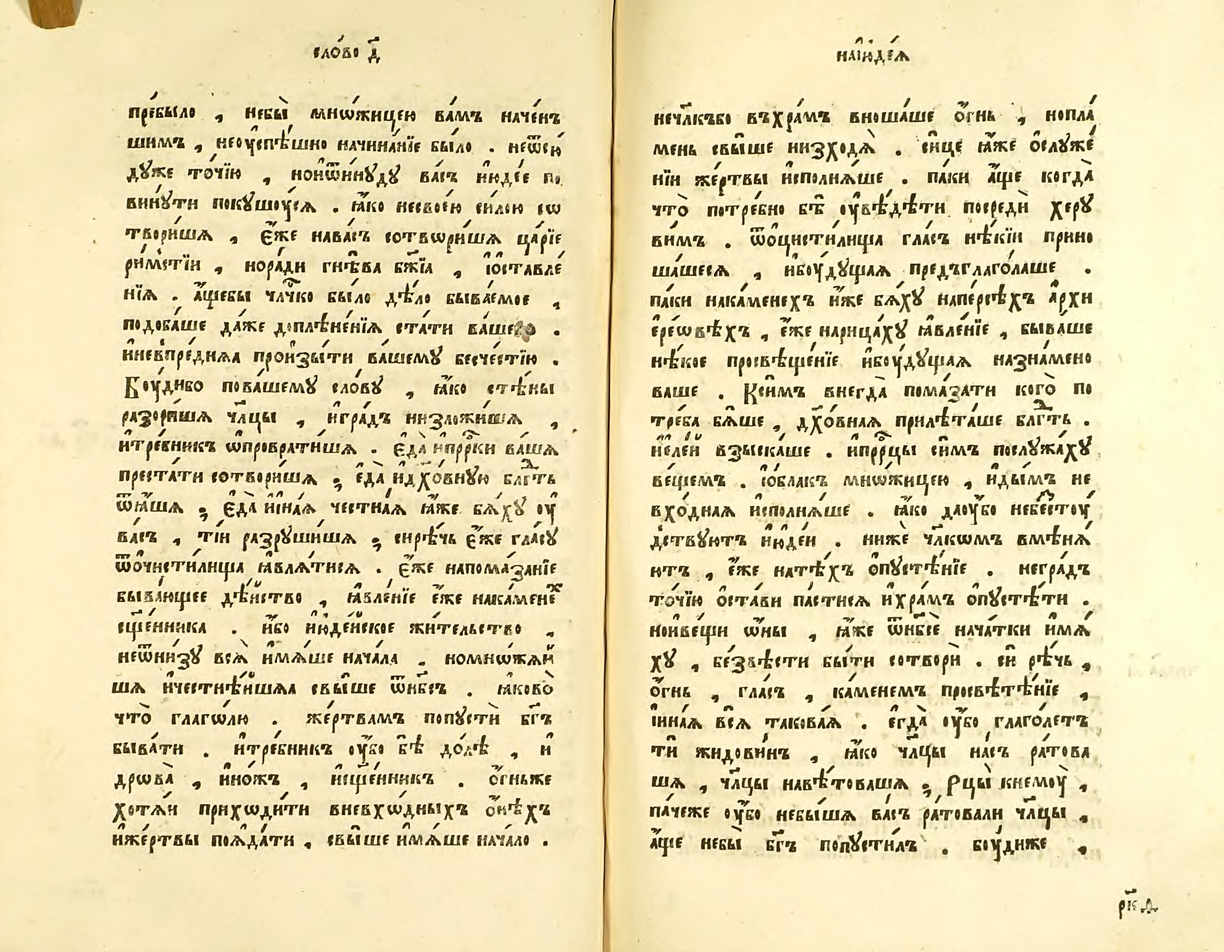 сло́во д҃
пре́было , небы̀ мно́жицею ва́мъ наче́н
шимъ , неоуспѣ́шно начина́нїе бы́ло . неѿсю́
дуже то́чїю , ноиѿину́ду ва́съ їюде́е по
вину́ти покуша́юся . ꙗ҆́ко несвое́ю си́лою со
твори́шꙗ , є҆́же нава́съ сотвори́шꙗ ца́рїе
ри́мстїи , но́ради гнѣ́ва бж҃їа , їоставле́
нїꙗ . а҆́щебы члч҃ко бы́ло дѣ́ло быва́емое ,
подоба́ше да́же доплѣне́нїꙗ ста́ти ва́шего .
и҆невпре́днꙗꙗ произы́ти ва́шемꙋ бесче́стїю .
Боу́дибо пова́шемꙋ сло́вꙋ , ꙗ҆́ко стѣ́ны
разори́шꙗ чл҃цы , игра́дъ низложи́шꙗ ,
итре́бникъ ѡпроврати́шꙗ . є҆да̀ ипрр҃ки ва́шꙗ
преста́ти сотвори́шꙗ ; є҆да̀ идх҃о́внꙋю блг҃ть
ѿꙗ́шꙗ ; є҆да̀ и҆на́ꙗ честна́ꙗ ꙗ҆́же бꙗ́хꙋ оу
ва́съ , ті́и разрꙋши́шꙗ ; сирѣ́чь є҆́же гла́сꙋ
ѿочисти́лища ꙗвлꙗ́тисꙗ . є҆́же напома́занїе
быва́ющее дѣ́йство , ꙗвле́нїе є҆́же накамене́х
сщ҃е́нника . и҆́бо їюде́йское жи́тельство ,
неѿни́зꙋ всꙗ̀ имꙗ́ше нача́ла . номно́жꙗй
шꙗ ичестнѣ́йшаꙗ свы́ше ѿнб҃съ . ꙗково̀
что̀ глаго́лю . же́ртвамъ попꙋстѝ бг҃ъ
быва́ти . итре́бникъ оу҆́бо бѣ̀ до́лѣ , и
дрова̀ , ино́жъ , исщ҃е́нникъ . о҆́гньже
хотꙗ́и приходи́ти вневхо́дныхъ о҆́нѣхъ
иже́ртвы поꙗда́ти , свы́ше имꙗ́ше нача́ло .
наїюде́ꙗ
неч҃лкъбо въхра́мъ вноша́ше о҆́гнь , нопла́
мень свы́ше низходꙗ̀ . си́це ꙗ҆́же ослꙋже́
нїи же́ртвы исполнꙗ́ше . па́ки а҆́ще когда̀
что̀ потре́бно бѣ̀ оувѣ́дѣти посредѝ херꙋ
ви́мъ . ѿоцисти́лища гла́съ нѣ́кїи прино
ша́шесꙗ , ибоу́дꙋщаꙗ предъглаго́лаше .
па́ки нака́менехъ и҆́же бꙗ́хꙋ напе́рсѣхъ а҆рхи
ере́ѡвѣхъ , є҆́же нарица́хꙋ ꙗвле́нїе , быва́ше
нѣ́кое просвѣще́нїе ибоу́дꙋщаꙗ назна́мено
ваше . Ксимъ внегда̀ пома́зати кого̀ по
тре́ба бꙗ́ше , дх҃о́внаꙗ прилѣта́ше блг҃ть .
и҆еле́й взыска́ше . ипрр҃цы си́мъ послꙋжа́хꙋ
ве́щемъ . їо́блакъ мно́жицею , иды́мъ не
вхо́днаꙗ исполнꙗ́ше . ꙗ҆́ко даоу҆́бо небе́стоу
дствꙋютъ їюде́и . ни́же чл҃комъ вменꙗ́
ютъ , є҆́же натѣ́хъ опꙋстѣ́нїе . негра́дъ
то́чїю оста́ви па́стисꙗ ихра́мъ опꙋстѣ́ти .
нои҆ве́щи ѡ҆́ны , ꙗ҆́же ѿнб҃се нача́тки и҆мꙗ́
хꙋ , безвѣ́сти бы́ти сотворѝ . си́ рѣчь ,
о҆́гнь , гла́съ , ка́менемъ просвѣтѣ́нїе ,
їина́ꙗ всꙗ̀ такова́ꙗ . егда̀ оу҆́бо глаго́летъ
ти жидови́нъ , ꙗ҆́ко чл҃цы на́съ ратова
шꙗ , чл҃цы навѣ́товашꙗ ; Рцы̀ кнемоу̀ ,
па́чеже оу҆́бо небы́шꙗ ва́съ ратова́ли чл҃цы ,
а҆́ще небы̀ бг҃ъ попꙋсти́лъ . боу́диже ,
рк҃д